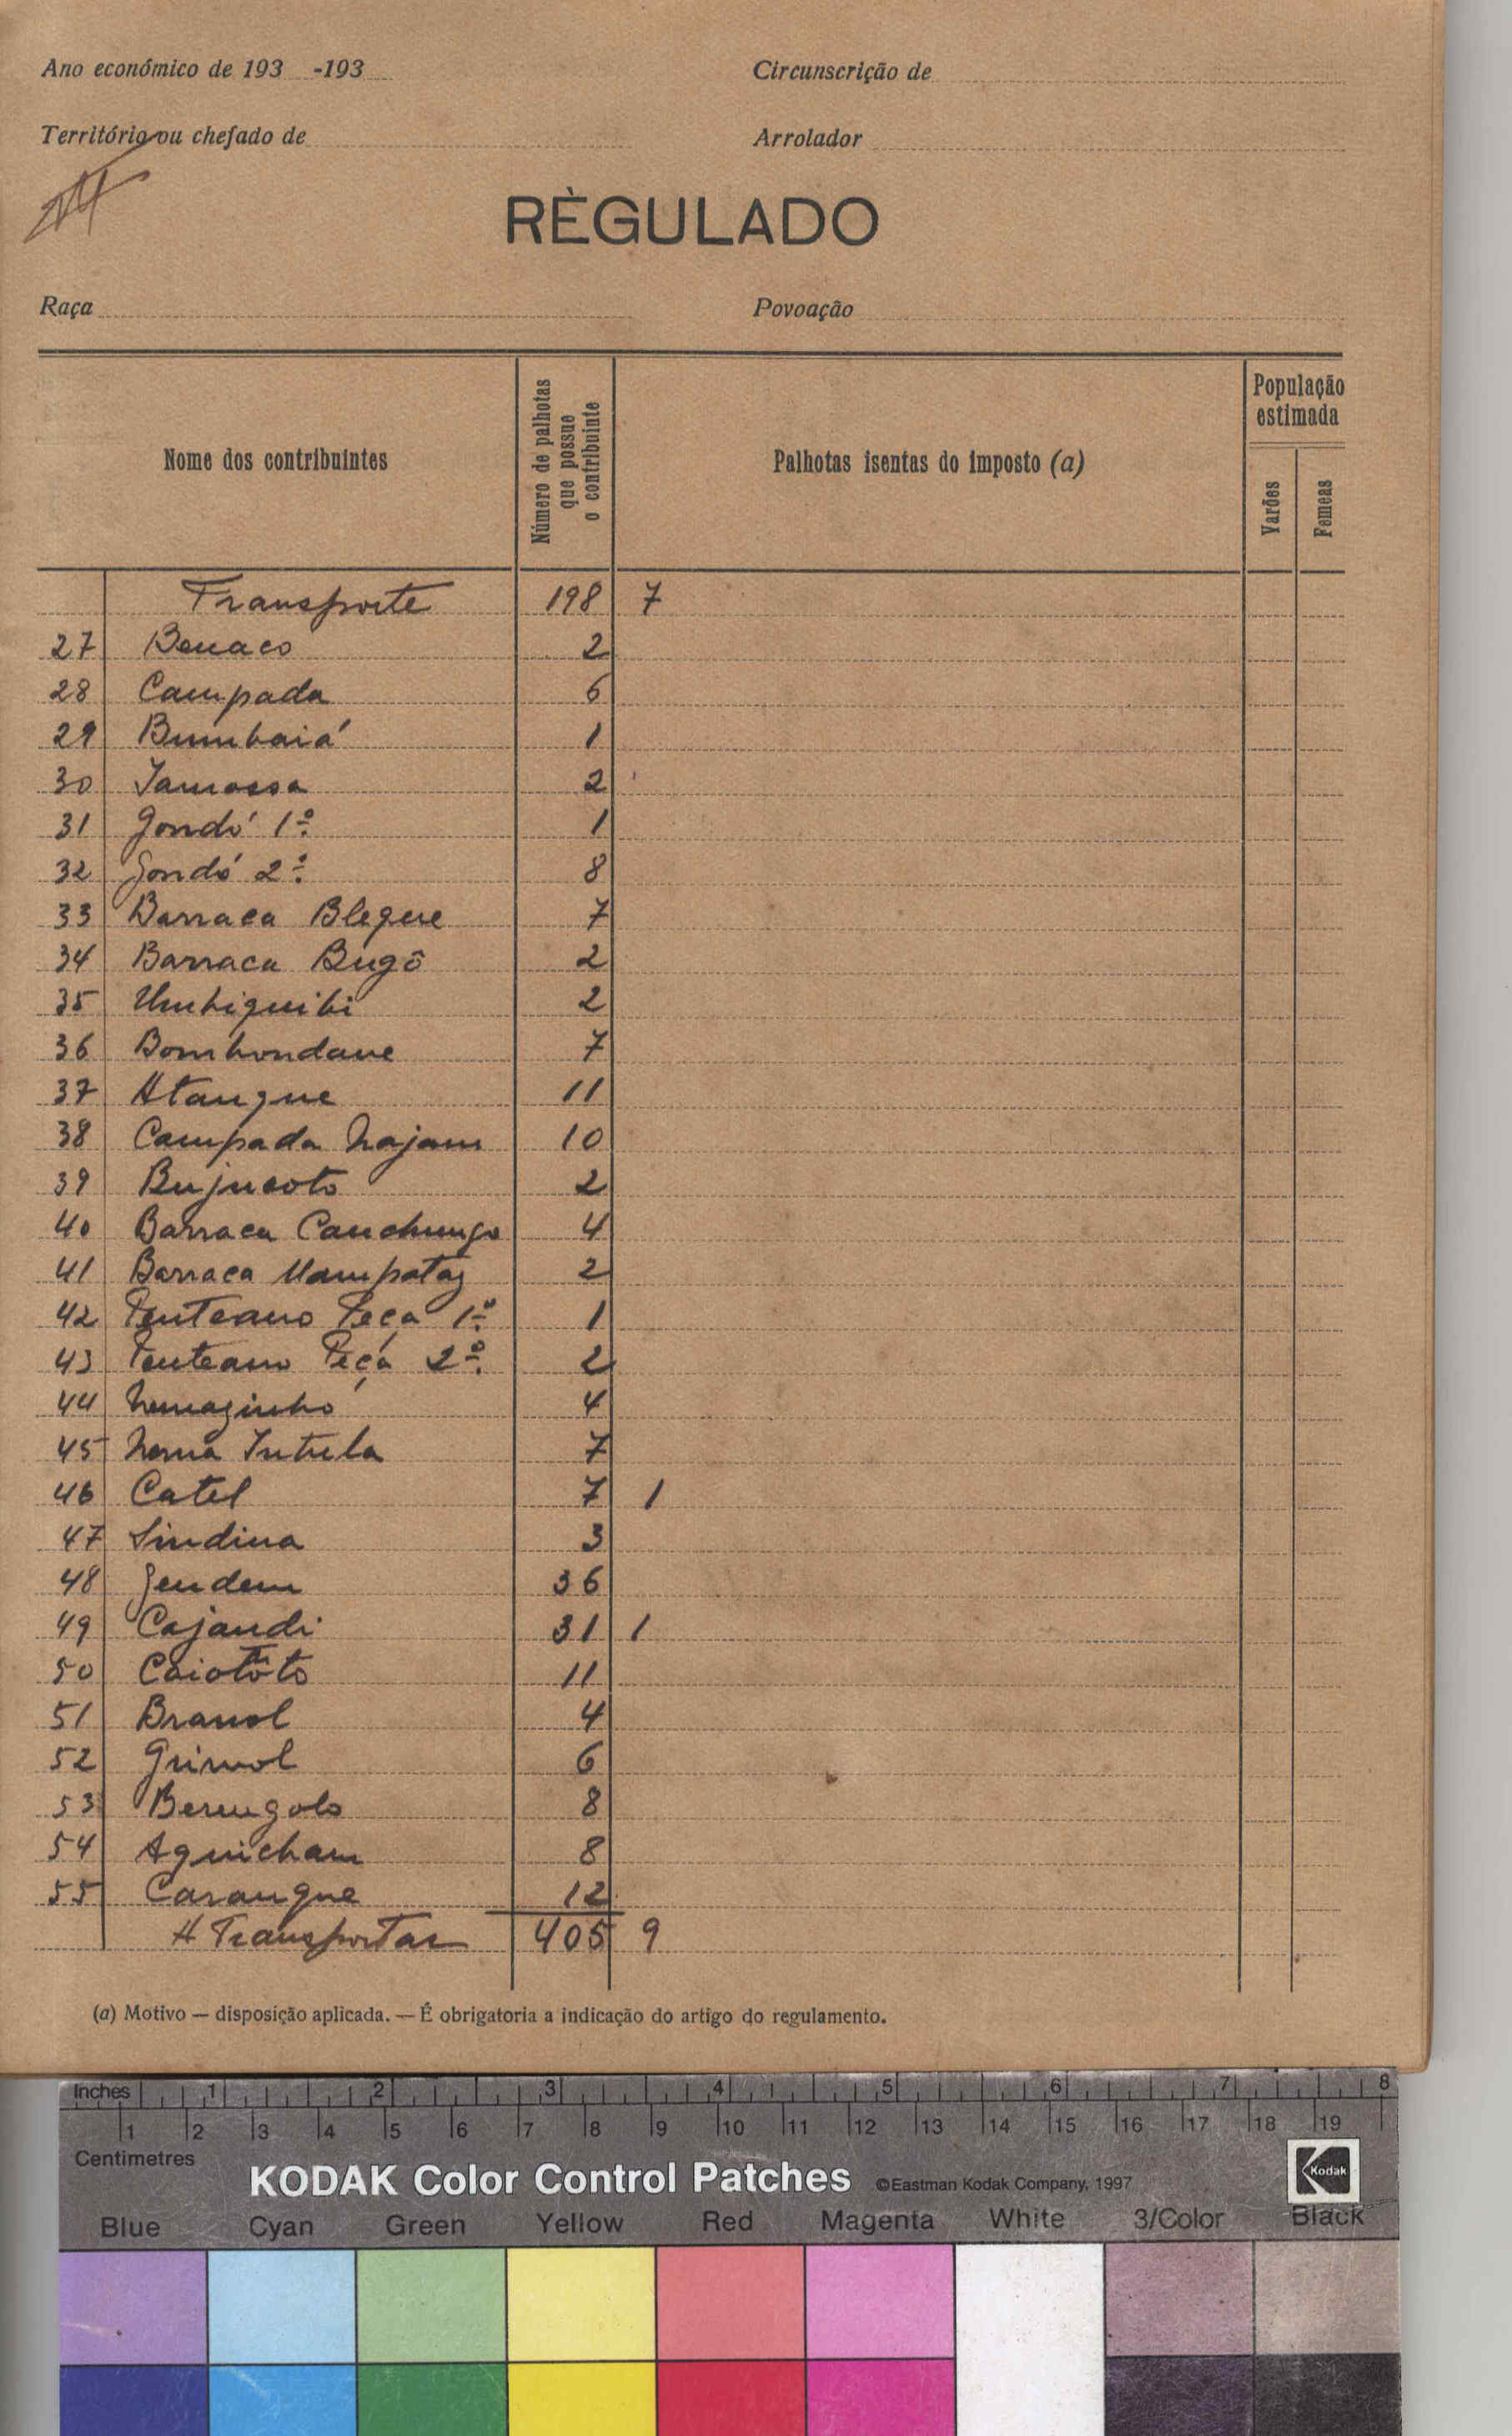 Ano económico de 193 -193
Circunscrição de
Território ou chefado de
Arrolador
RÈGULADO
Raça
Povoação
Nome dos contribuintes
Número de palhotas que possue o contribuinte
Palhotas isentas do imposto (a)
População estimada
Varões
Femeas
Transporte 198 7
27 Benaco 2
28 Campada 6
29 Bumbaiá 1
30 Jamossa 2
31 Jondó 1º 1
32 Jondó 2º 8
33 Barraca Bleque 7
34 Barraca Bugô 2
35 Umbiquibi 2
36 Bombondane 7
37 Atangue 11
38 Campada Najam 10
39 Bujucoto 2
40 Barraca Canchungo 4
41 Barraca Mampataz 2
42 Penteano Peça 1º 1
43 Penteano Peça 2º 2
44 4
45 Intula 7
46 Catel 7 1
47 Sindina 3
48 Jendem 36
49 Cajandi 31 1
50 Caiotôto 11
51 Branol 4
52 6
53 Berengolo 8
54 Aguicham 8
55 Carangue 12
A Transportar 405 9
(a) Motivo — disposição aplicada. — É obrigatoria a indicação do artigo do regulamento.
Inches 1 2 3 4 5 6 7 8
1 2 3 4 5 6 7 8 9 10 11 12 13 14 15 16 17 18 19
Centimetres
KODAK Color Control Patches ©Eastman Kodak Company, 1997 Kodak
Blue Cyan Green Yellow Red Magenta White 3/Color Black